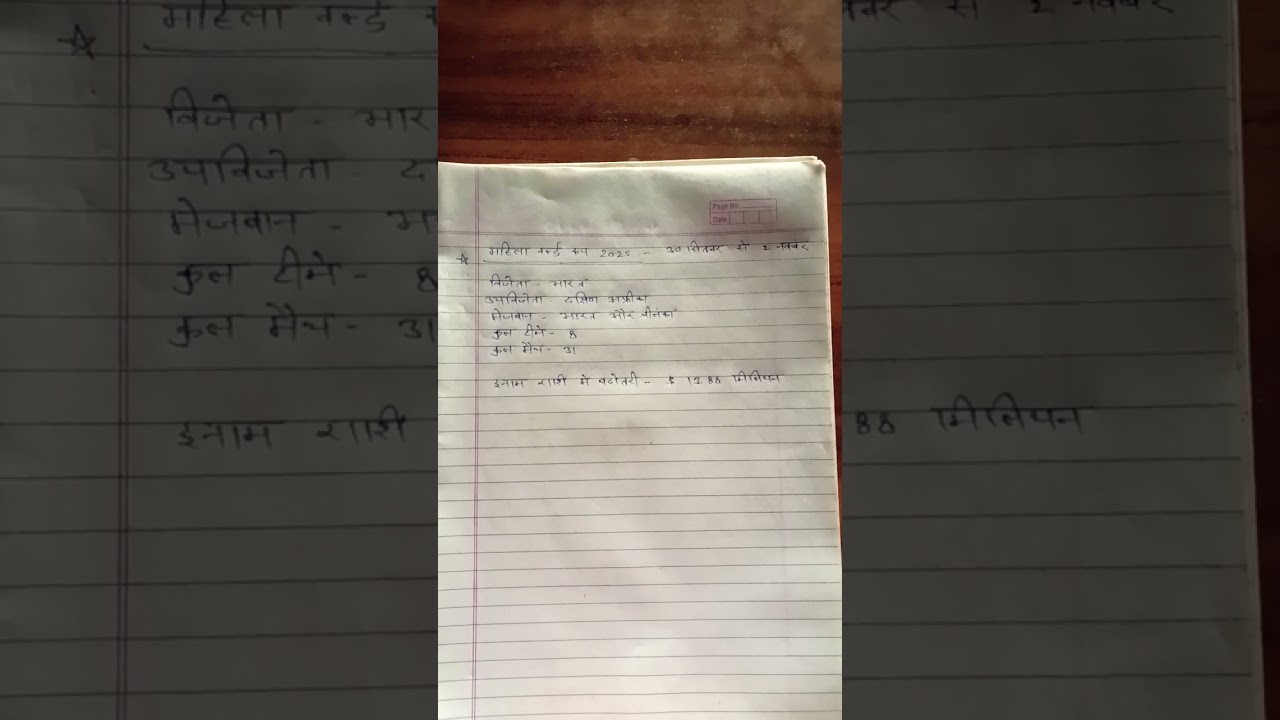 Page No.
Date
☆ महिला वर्ल्ड कप 2025 - 30 सितंबर से 2 नवंबर
विजेता - भारत
उपविजेता - दक्षिण अफ्रीका
मेजबान - भारत और श्रीलंका
कुल टीमे - 8
कुल मैच - 31
इनाम राशी मे बढोतरी - $ 13.88 मिलियन